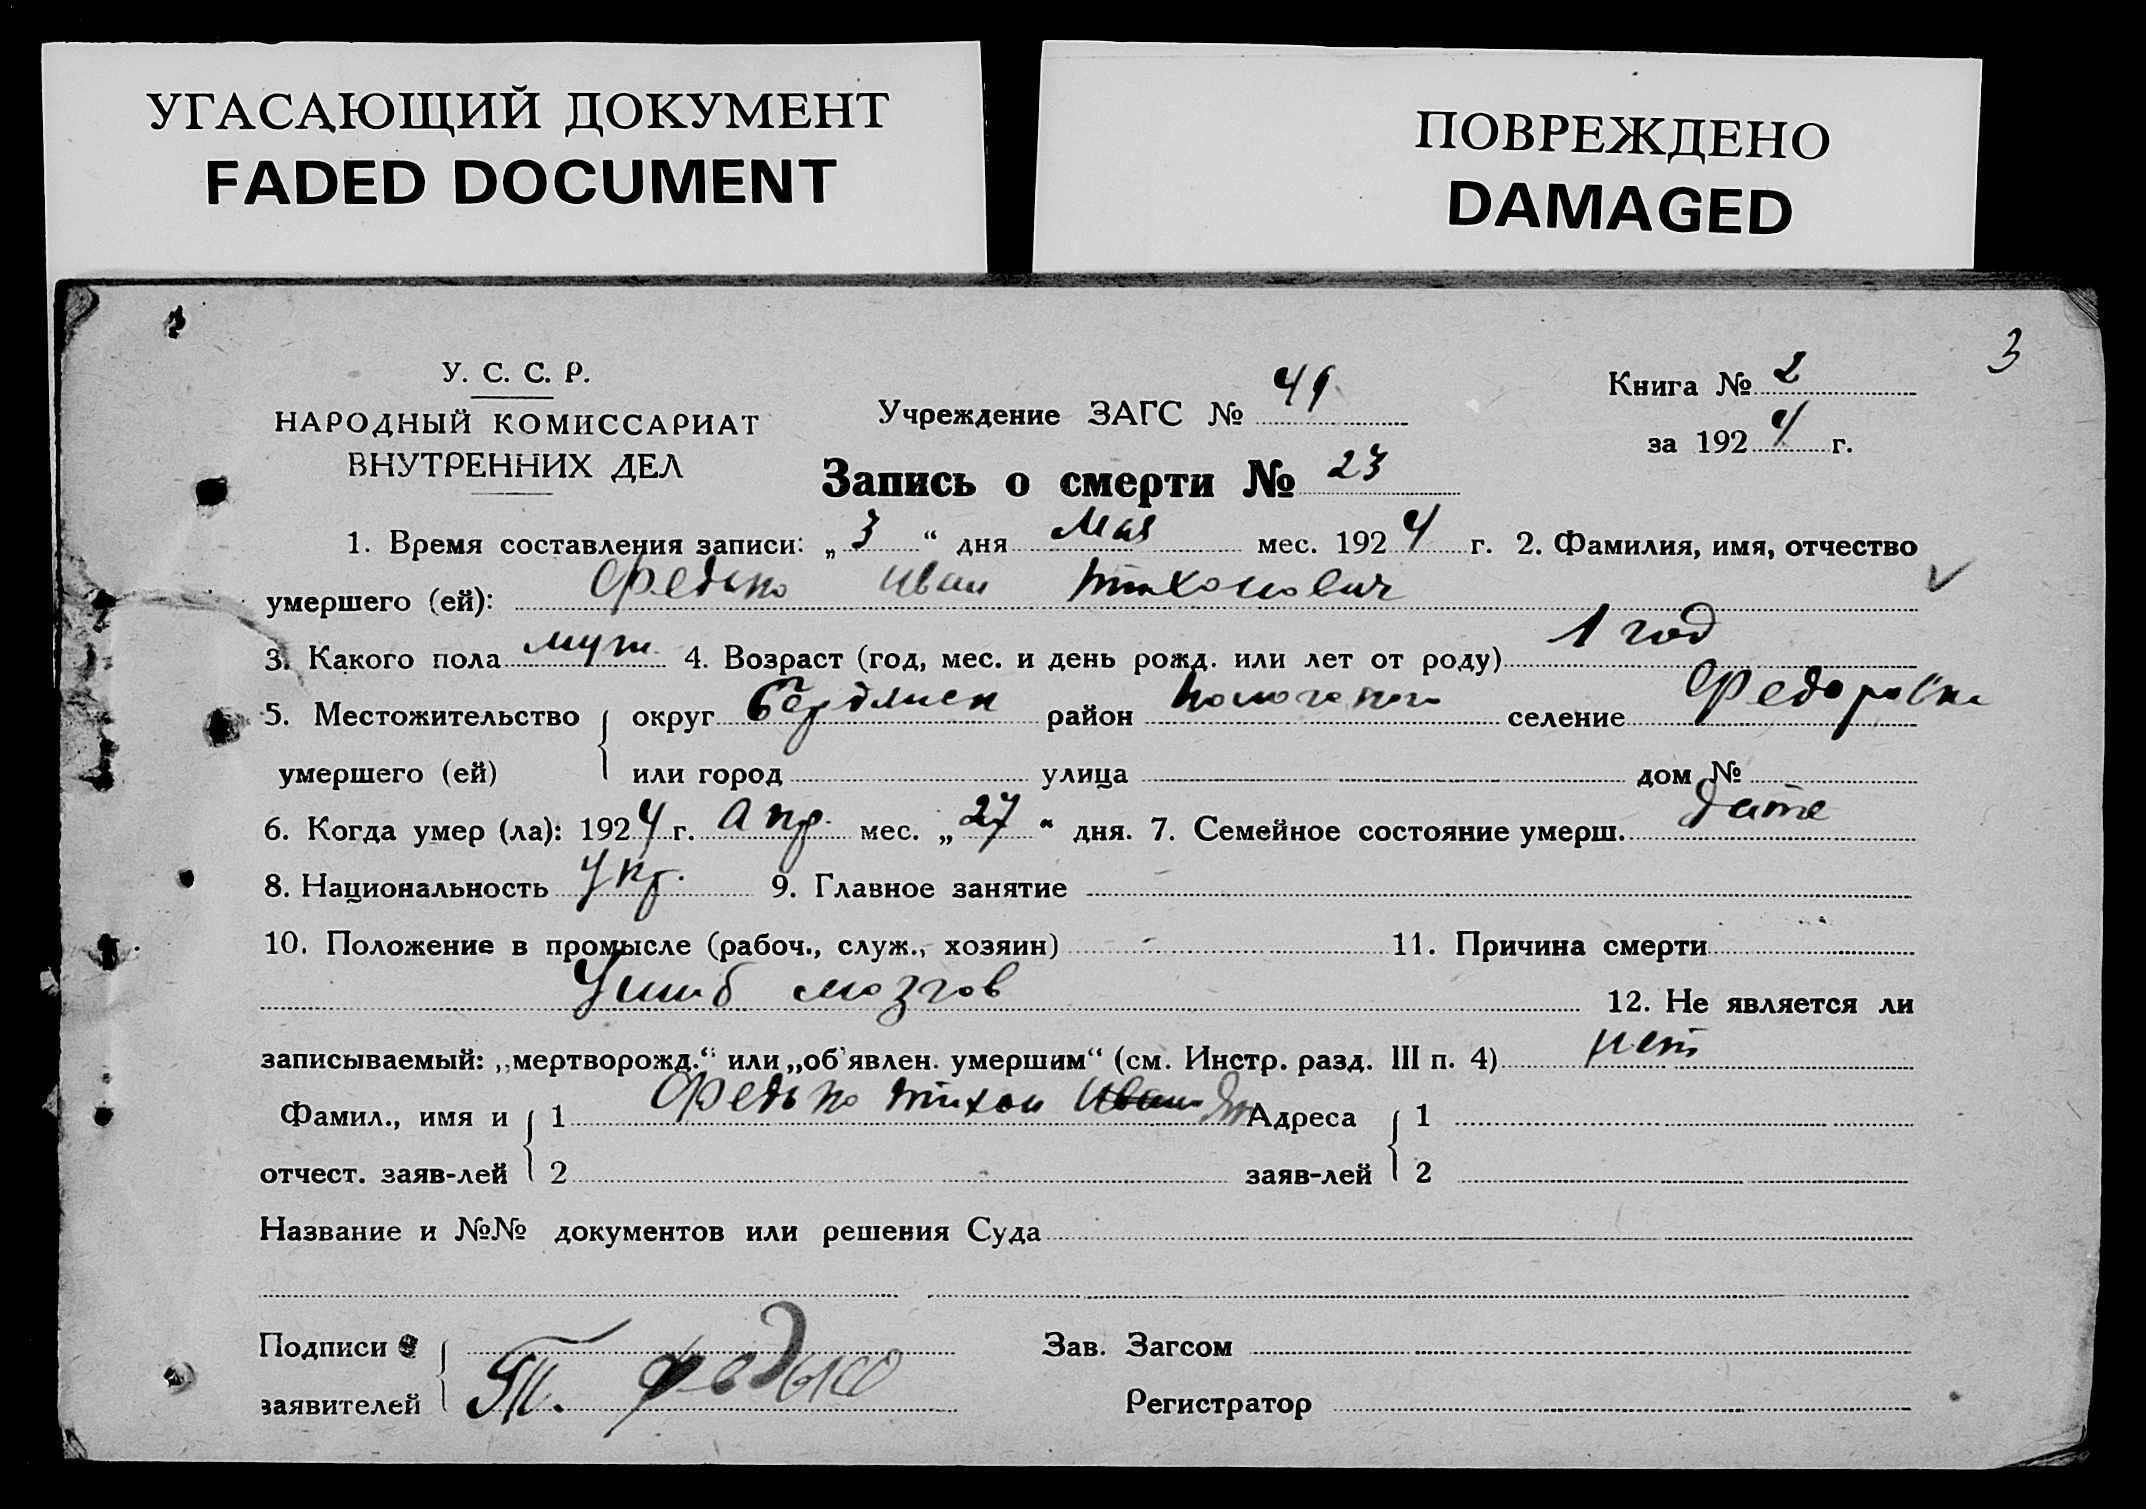 УГАСАЮЩИЙ ДОКУМЕНТ
FADED DOCUMENT
ПОВРЕЖДЕНО
DAMAGED
3
У. С. С. Р.
НАРОДНЫЙ КОМИССАРИАТ
ВНУТРЕННИХ ДЕЛ
Учреждение ЗАГС № 41
Книга № 2
за 1924 г.
Запись о смерти № 23
1. Время составления записи: „3“ дня Мая мес. 1924 г. 2. Фамилия, имя, отчество
умершего (ей): Федько Иван Тихонович
3. Какого пола муж. 4. Возраст (год, мес. и день рожд. или лет от роду) 1 год
5. Местожительство округ Бердянск район Пологского селение Федоровка
умершего (ей) или город улица дом №
6. Когда умер (ла): 1924 г. Апр. мес. „27“ дня. 7. Семейное состояние умерш. дитя
8. Национальность Укр. 9. Главное занятие -
10. Положение в промысле (рабоч., служ., хозяин) - 11. Причина смерти
Ушиб мозгов 12. Не является ли
записываемый: „мертворожд.“ или „об'явлен. умершим“ (см. Инстр. разд. III п. 4) нет
Фамил., имя и 1 Федько Тихон Адреса 1
отчест. заяв-лей 2 заяв-лей 2
Название и №№ документов или решения Суда
Подписи Зав. Загсом
Т. Федько
заявителей Регистратор